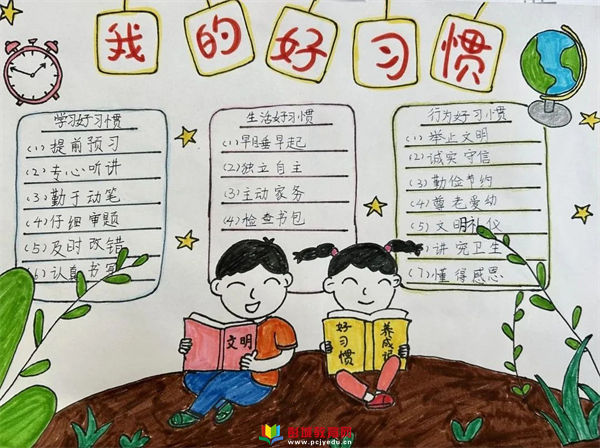 我的好习惯
学习好习惯
(1)提前预习
(2)专心听讲
(3)勤于动笔
(4)仔细审题
(5)及时改错
(6)认真书写
生活好习惯
(1)早睡早起
(2)独立自主
(3)主动家务
(4)检查书包
行为好习惯
(1)举止文明
(2)诚实守信
(3)勤俭节约
(4)尊老爱幼
(5)文明礼仪
(6)讲究卫生
(7)懂得感恩
文明
好习惯
养成记
www.pcjyedu.cn